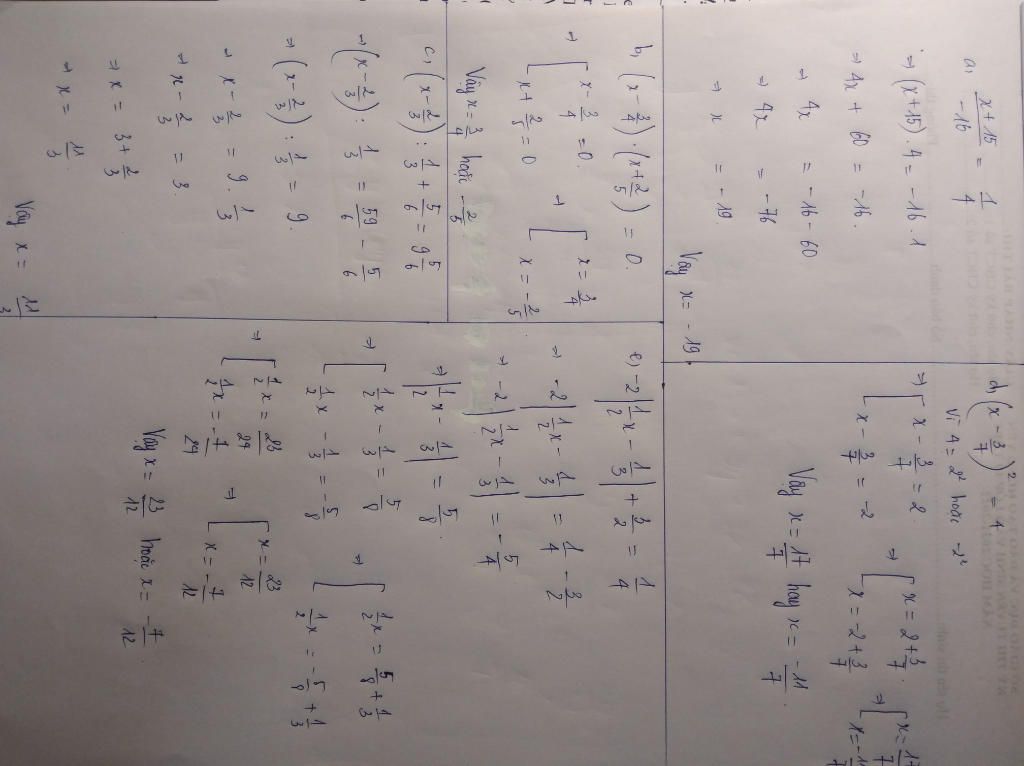 a, (x+15)/-16 = 1/4
⇒ (x+15).4 = -16.1
⇒ 4x + 60 = -16.
⇒ 4x = -16 - 60
⇒ 4x = -76
⇒ x = -19.
Vậy x = -19
b, (x - 3/4).(x + 2/5) = 0.
⇒ [ x - 3/4 = 0. ⇒ [ x = 3/4
x + 2/5 = 0 x = -2/5
Vậy x = 3/4 hoặc -2/5
c, (x - 2/3) : 1/3 + 5/6 = 9 5/6
⇒ (x - 2/3) : 1/3 = 59/6 - 5/6
⇒ (x - 2/3) : 1/3 = 9.
⇒ x - 2/3 = 9 . 1/3
⇒ x - 2/3 = 3.
⇒ x = 3 + 2/3
⇒ x = 11/3.
Vậy x = 11/3
d, (x - 3/7)² = 4
Vì 4 = 2² hoặc -2²
⇒ [ x - 3/7 = 2. ⇒ [ x = 2 + 3/7. ⇒ [ x = 17/7
x - 3/7 = -2 x = -2 + 3/7 x = -11/7
Vậy x = 17/7 hay x = -11/7
e, -2|1/2x - 1/3| + 3/2 = 1/4
⇒ -2|1/2x - 1/3| = 1/4 - 3/2
⇒ -2|1/2x - 1/3| = -5/4
⇒ |1/2x - 1/3| = 5/8.
⇒ [ 1/2x - 1/3 = 5/8 ⇒ [ 1/2x = 5/8 + 1/3
1/2x - 1/3 = -5/8 1/2x = -5/8 + 1/3
⇒ [ 1/2x = 23/24 ⇒ [ x = 23/12
1/2x = -7/24 x = -7/12
Vậy x = 23/12 hoặc x = -7/12